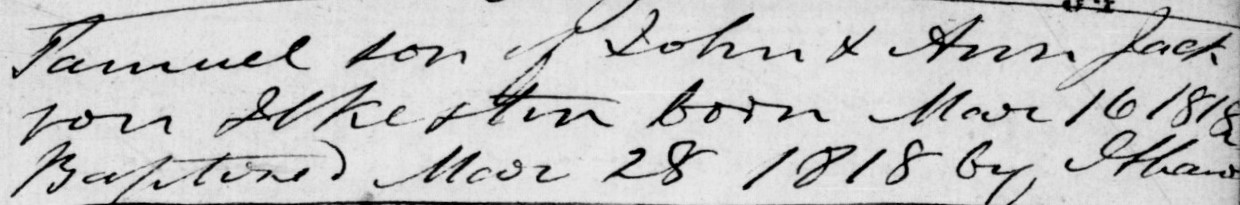 Samuel son of John & Ann Jack
son Ilkeston born Mar 16 1818
Baptised Mar 28 1818 by, J Shaw